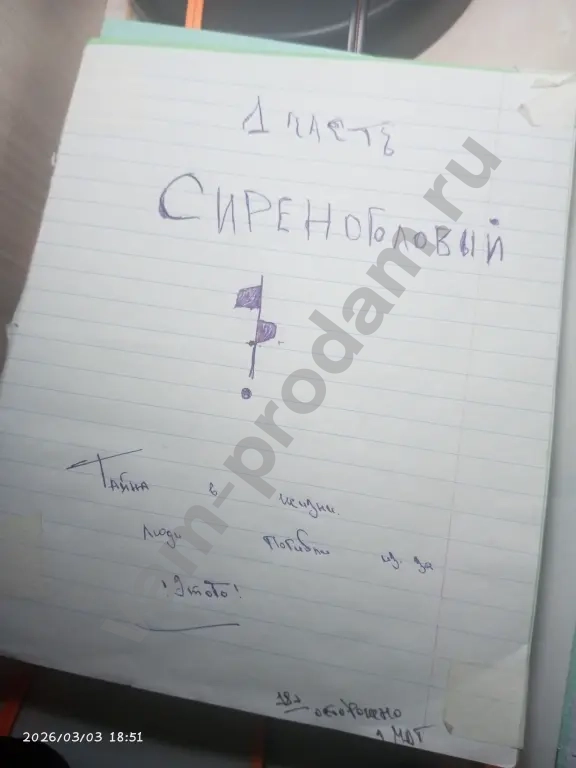 1 ЧАСТЬ
СИРЕНОГОЛОВЫЙ
ТАЙНА в жизни.
Люди погибли из-за
!Этого!
18+
осторожно
2026/03/03 18:51
m-prodam.ru